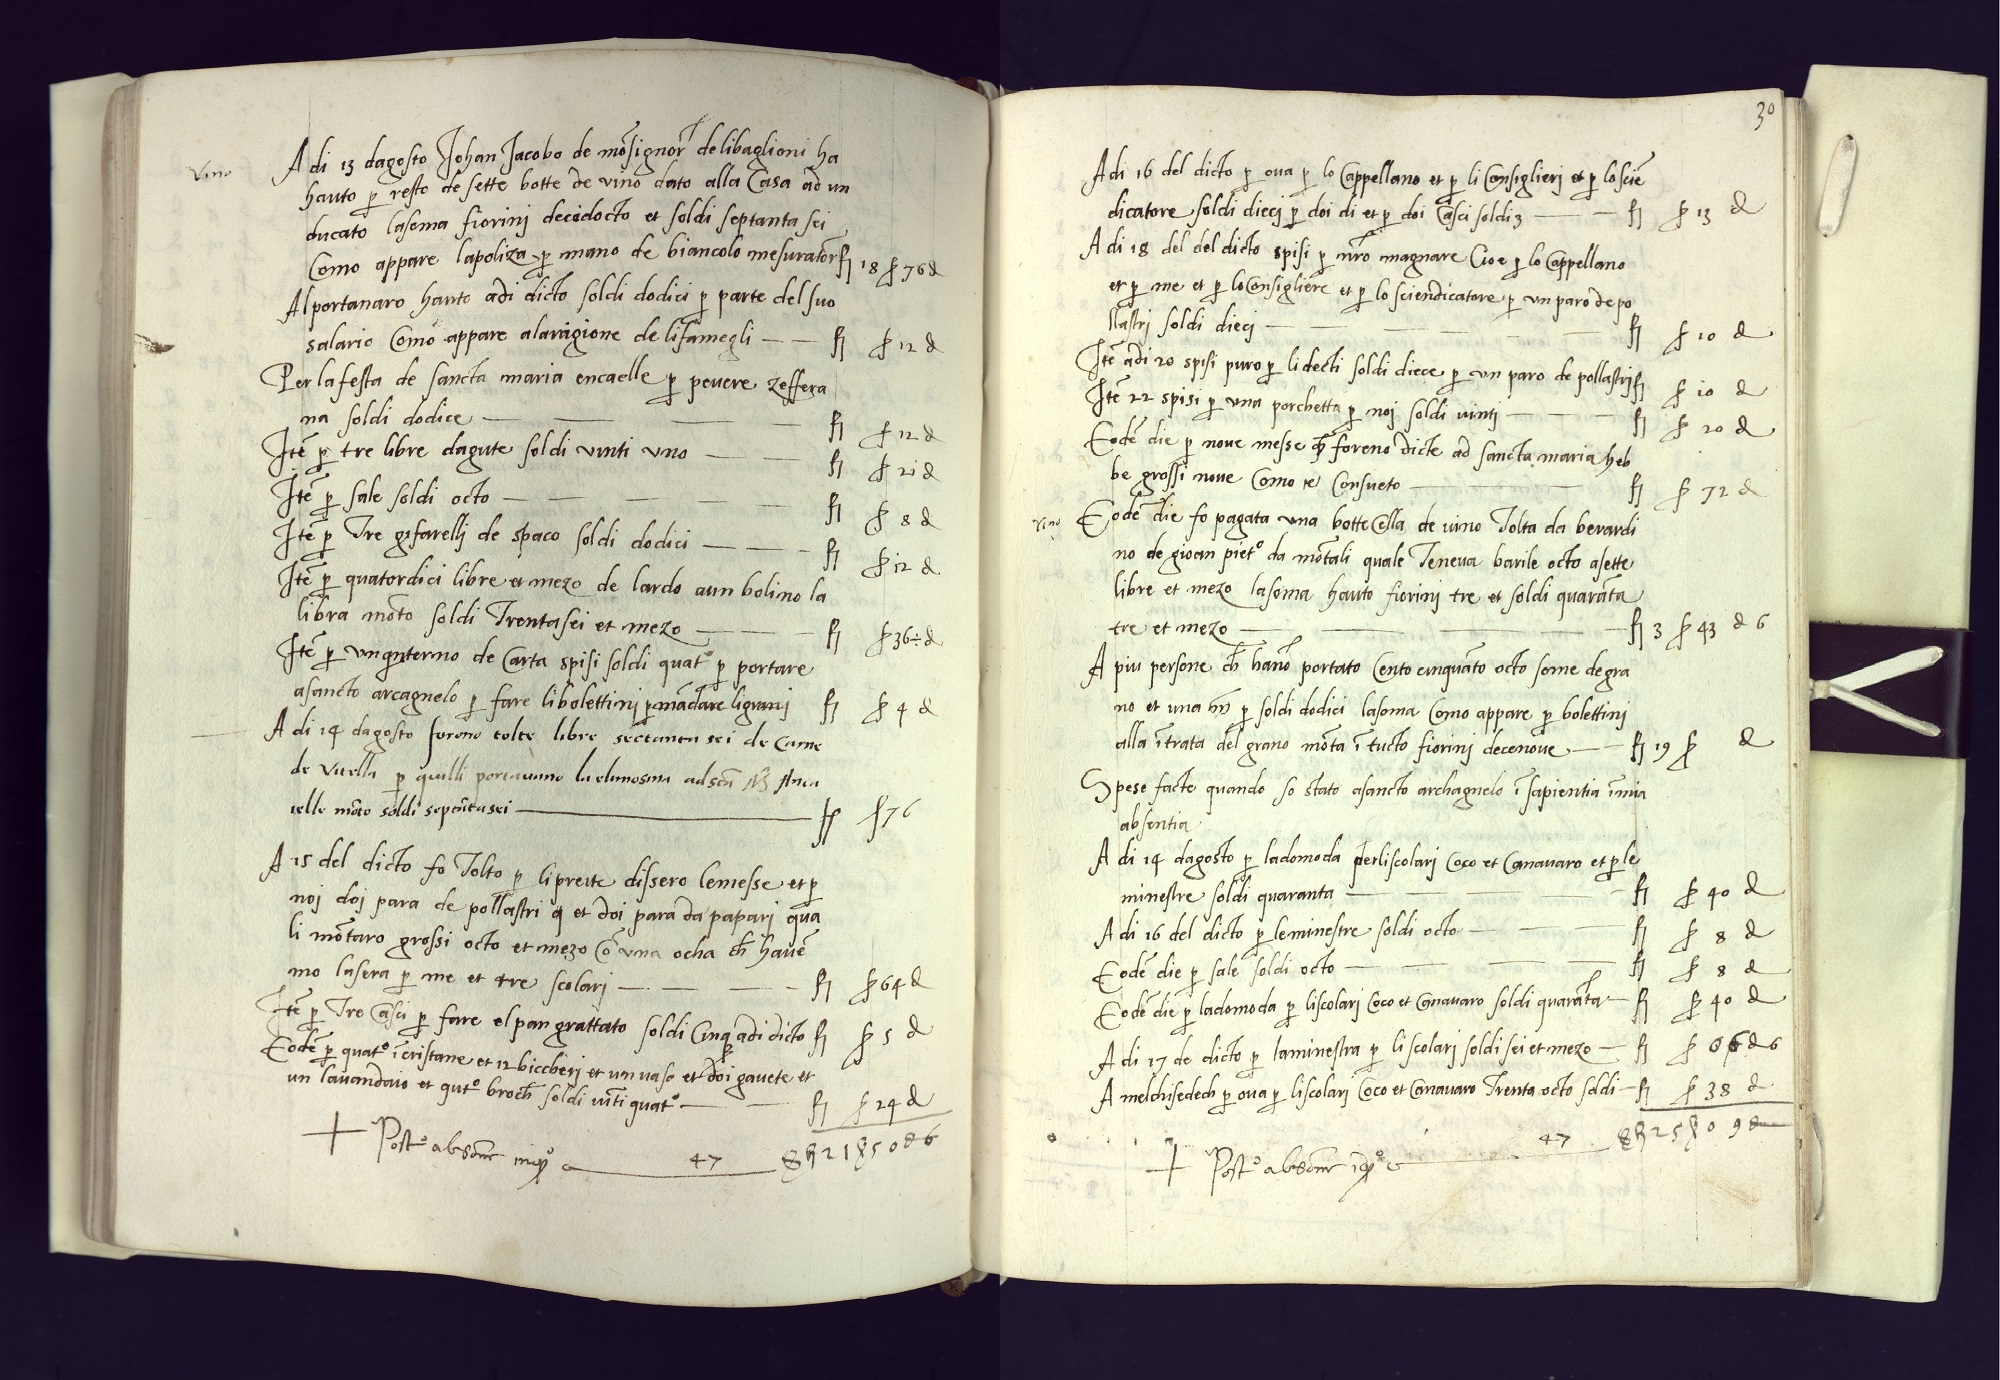 vino
A di 13 dagosto Johan Jacobo de mõsignor delibaglioni ha
hauto p resto de sette botte de vino dato alla Casa ad un
ducato lasoma fiorini decidocto et soldi septanta sei
Como appare lapoliza p mano de biancolo mesurator fl 18 β 76 d
Alportanaro hauto adi dicto soldi dodici p parte del suo
salario Como appare alaragione de lifamegli — fl β 12 d
Per lafesta de sancta maria encaelle p pevere zeffera
na soldi dodice — fl β 12 d
Itẽ p tre libre dagute soldi vinti uno — fl β 21 d
Itẽ p sale soldi octo — fl β 8 d
Itẽ p Tre de spaco soldi dodici — fl β 12 d
Itẽ p quatordici libre et mezo de lardo aun bolino la
libra mõto soldi Trentasei et mezo — fl β 36÷ d
Itẽ p un de Carta spisi soldi quat° p portare
asancto arcagnelo p fare libolettini p mãdare ligrani fl β 4 d
A di 14 dagosto forono tolte libre sectanta sei de Carne
de Vitella p quilli portavano la elimosina ad
celle mõto soldi septãtasei — fl β 76
A 15 del dicto fo Tolto p liprette dissero lemesse et p
noi doi para de pollastri et doi para da papari qua
li mõtaro grossi octo et mezo cõ una ocha ch havẽ
mo lasera p me et tre scolari — fl β 64 d
Itẽ p Tre Casci p fare elpan grattato soldi Cinq adi dicto fl β 5 d
Eodẽ p quat° ĩcristane et 12 biccheri et un vaso et doi gavete et
un lavandaio et qut° broch soldi vĩti quat° — fl β 24 d
Post° 47 fl 21 β 50 d 6
30
A di 16 del dicto p ova p lo Cappellano et p li Consiglieri et p lo sciẽ
dicatore soldi dieci p doi di et p doi Casci soldi 3 — fl β 13 d
A di 18 del del dicto spisi p nr̃o magnare Cioe p lo Cappellano
et p me et p lo Consigliere et p lo sciendicatore p un paro de po
llastri soldi dieci — fl β 10 d
Itẽ adi 20 spisi puro p lidecti soldi diece p un paro de pollastri fl β 10 d
Itẽ 22 spisi p una porchetta p noi soldi vinti — fl β 20 d
Eodẽ die p nove messe ch foreno dicte ad sancta maria heb
be grossi nove Como e Consueto — fl β 72 d
vino
Eodẽ die fo pagata una botte Cella de vino Tolta da berardi
no de gioan piet° da mõtali quale Teneva barile octo asette
libre et mezo lasoma hauto fiorini tre et soldi quarãta
tre et mezo — fl 3 β 43 d 6
A piu persone ch hãno portato Cento cinquãto octo some de gra
no et una p soldi dodici lasoma Como appare p bolettini
alla ĩtrata del grano mõta ĩ tucto fiorini decenove — fl 19 β d
Spese facte quando so stato asancto archagnelo ĩ sapientia ĩ mia
absentia
A di 14 dagosto p ladomoda perliscolari Coco et Canavaro et p le
minestre soldi quaranta — fl β 40 d
A di 16 del dicto p leminestre soldi octo — fl β 8 d
Eodẽ die p sale soldi octo — fl β 8 d
Eodẽ die p ladomoda p liscolari Coco et Canavaro soldi quarãta — fl β 40 d
A di 17 de dicto p laminestra p li scolari soldi sei et mezo — fl β 06 d 6
A melchisedech p ova p liscolari Coco et Canavaro Trenta octo soldi — fl β 38 d
Post° 47 fl 25 β 0 9 d